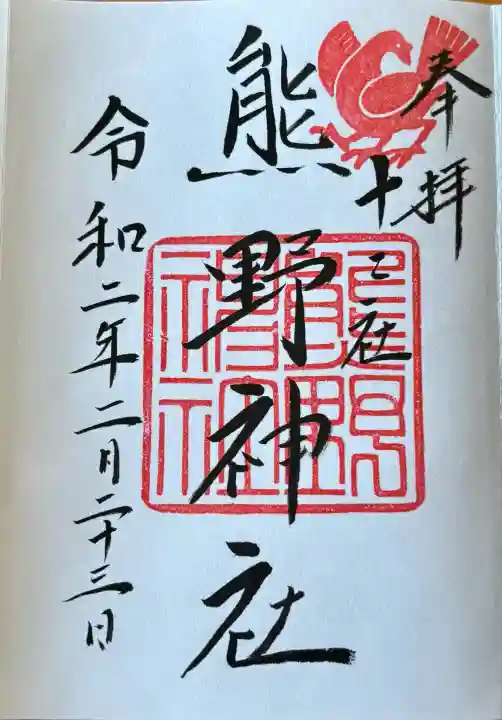 奉拝
十二社
熊野神社
令和二年二月二十三日